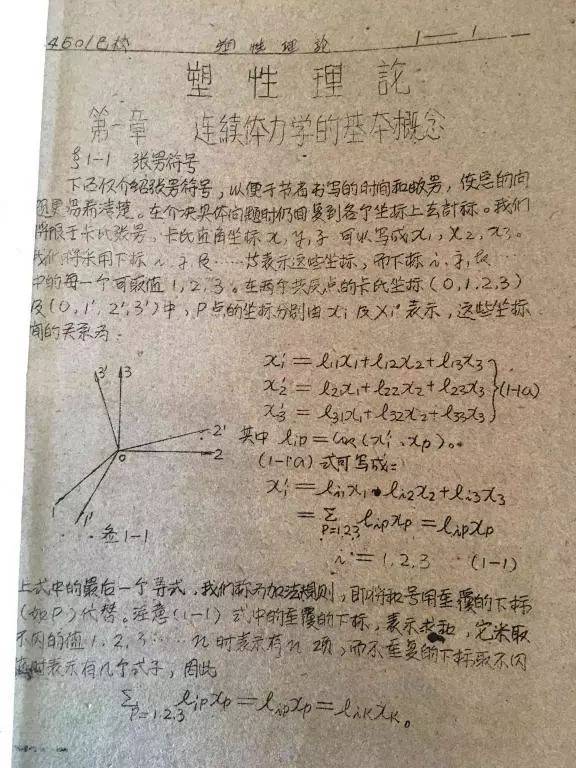 塑性理论 1—1
塑性理论
第一章 连续体力学的基本概念
§1-1 张量符号
下面仅介绍张量符号,以便于节省书写的时间和数量,使总的问
题显得清楚。在介决具体问题时仍回复到各个坐标上去计标。我们
将限于卡氏张量,卡氏直角坐标 x, y, z 可以写成 x₁, x₂, x₃。
我们将采用下标 i, j 及……等表示这些坐标,而下标 i, j, 
中的每一个可取值 1, 2, 3。在两个共反点的卡氏坐标 (0, 1, 2, 3)
及 (0, 1', 2', 3') 中,P点的坐标分别由 xi 及 xi' 表示,这些坐标
间的关系为:
3' 3
2'
0 2
1 1'
图1-1
x₁' = l₁₁x₁+l₁₂x₂+l₁₃x₃
x₂' = l₂₁x₁+l₂₂x₂+l₂₃x₃ (1-1a)
x₃' = l₃₁x₁+l₃₂x₂+l₃₃x₃
其中 lip = cos(xi', xp)。
(1-1a) 式可写成:
xi' = li₁x₁+li₂x₂+li₃x₃
= Σ lipxp = lipxp
P=1,2,3
i = 1, 2, 3 (1-1)
上式中的最后一个等式,我们称为加法规则,即将和号用重覆的下标
(如P)代替。注意(1-1)式中的重覆的下标,表示求和,它采取
不同的值 1, 2, 3 …… n 时表示有 n 项,而不重复的下标取不同
值时表示有几个式子,因此
Σ lipxp = lipxp = likxk。
P=1,2,3